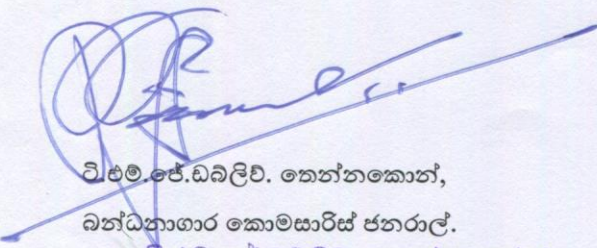 ටී.එම්.ජේ.ඩබ්ලිව්. තෙන්නකොන්,
බන්ධනාගාර කොමසාරිස් ජනරාල්.